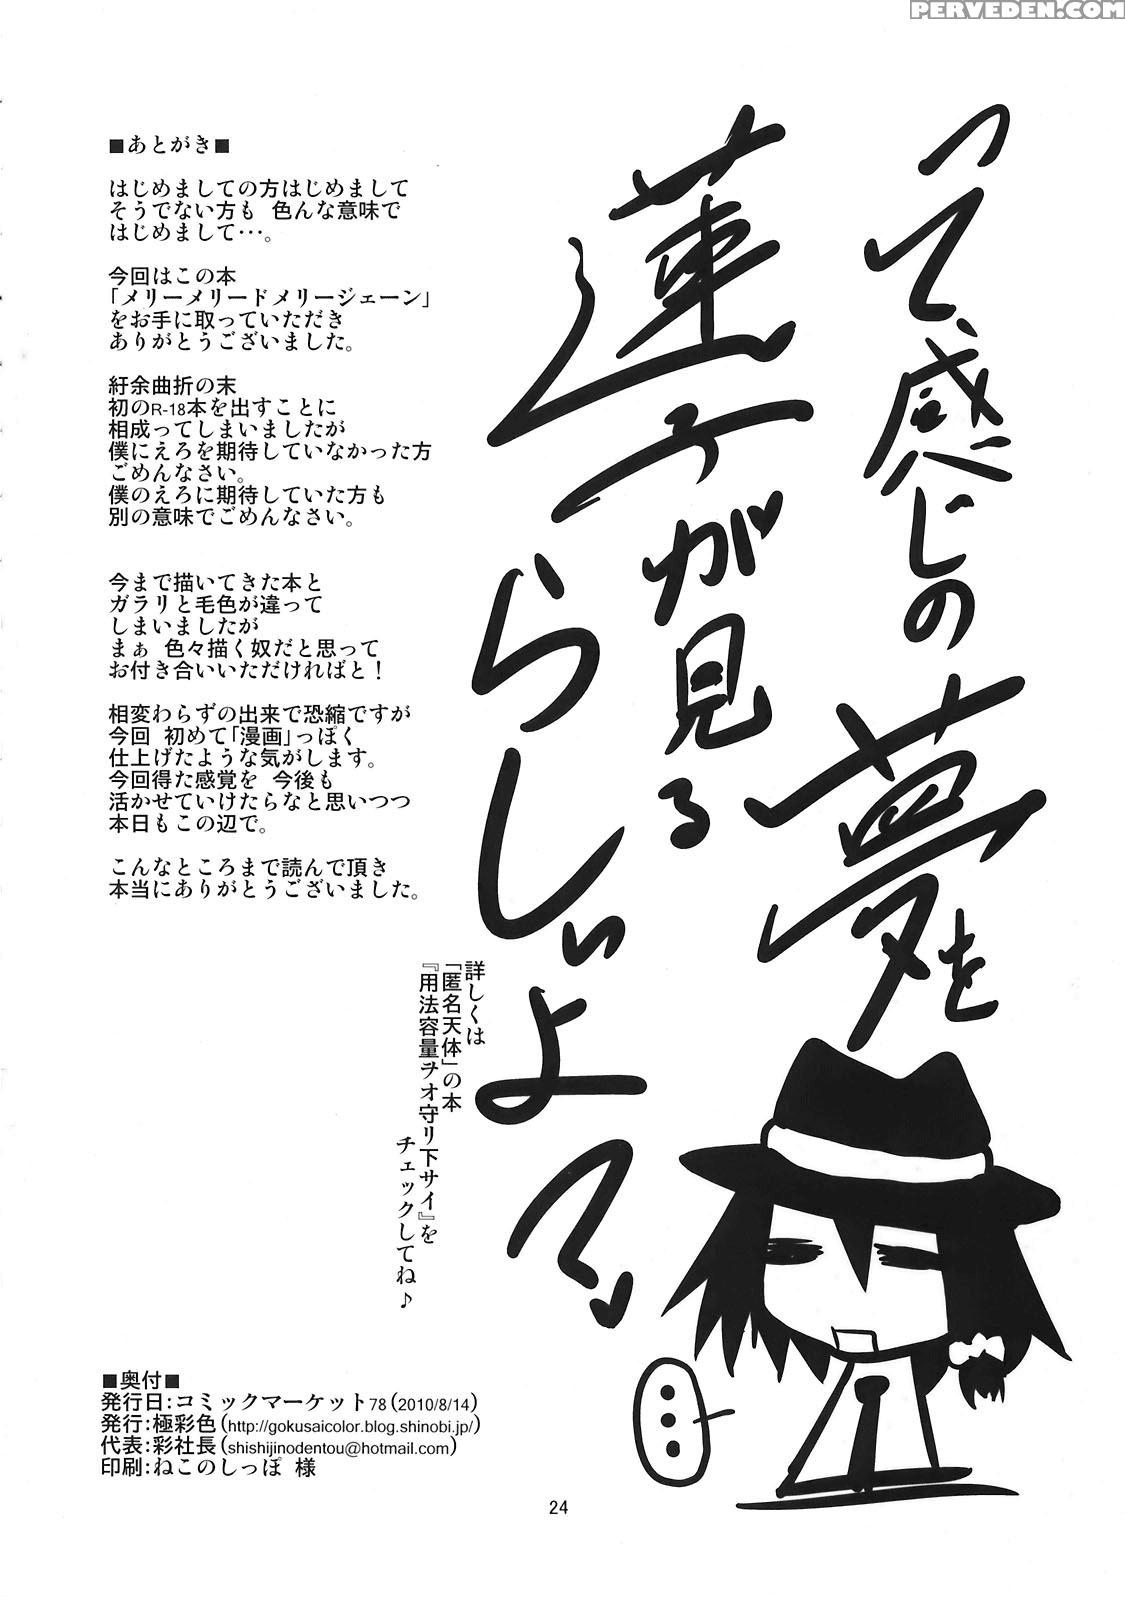 PERVEDEN.COM
って、感じの夢を
蓮子が見る
らしいよ?
■あとがき■
はじめましての方はじめまして
そうでない方も 色んな意味で
はじめまして･･･。
今回はこの本
「メリーメリードメリージェーン」
をお手に取っていただき
ありがとうございました。
紆余曲折の末
初のR-18本を出すことに
相成ってしまいましたが
僕にえろを期待していなかった方
ごめんなさい。
僕のえろに期待していた方も
別の意味でごめんなさい。
今まで描いてきた本と
ガラリと毛色が違って
しまいましたが
まぁ 色々描く奴だと思って
お付き合いいただければと！
相変わらずの出来で恐縮ですが
今回 初めて「漫画」っぽく
仕上げたような気がします。
今回得た感覚を 今後も
活かせていけたらなと思いつつ
本日もこの辺で。
こんなところまで読んで頂き
本当にありがとうございました。
詳しくは
「匿名天体」の本
『用法容量ヲオ守リ下サイ』を
チェックしてね♪
…
■奥付■
発行日：コミックマーケット78（2010/8/14）
発行：極彩色（http://gokusaicolor.blog.shinobi.jp/）
代表：彩社長（shishijinodentou@hotmail.com）
印刷：ねこのしっぽ 様
24